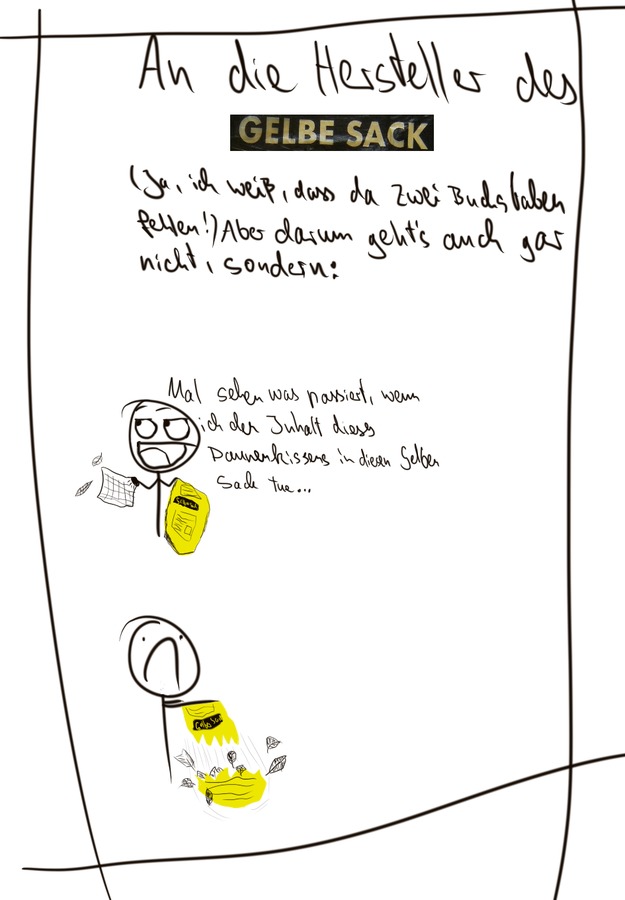 An die Hersteller des
GELBE SACK
(Ja, ich weiß, dass da zwei Buchstaben
fehlen!) Aber darum geht's auch gar
nicht, sondern:
Mal sehen was passiert, wenn
ich den Inhalt dieses
Daunenkissens in diesen Gelben
Sack tue...
Gelbe Sack